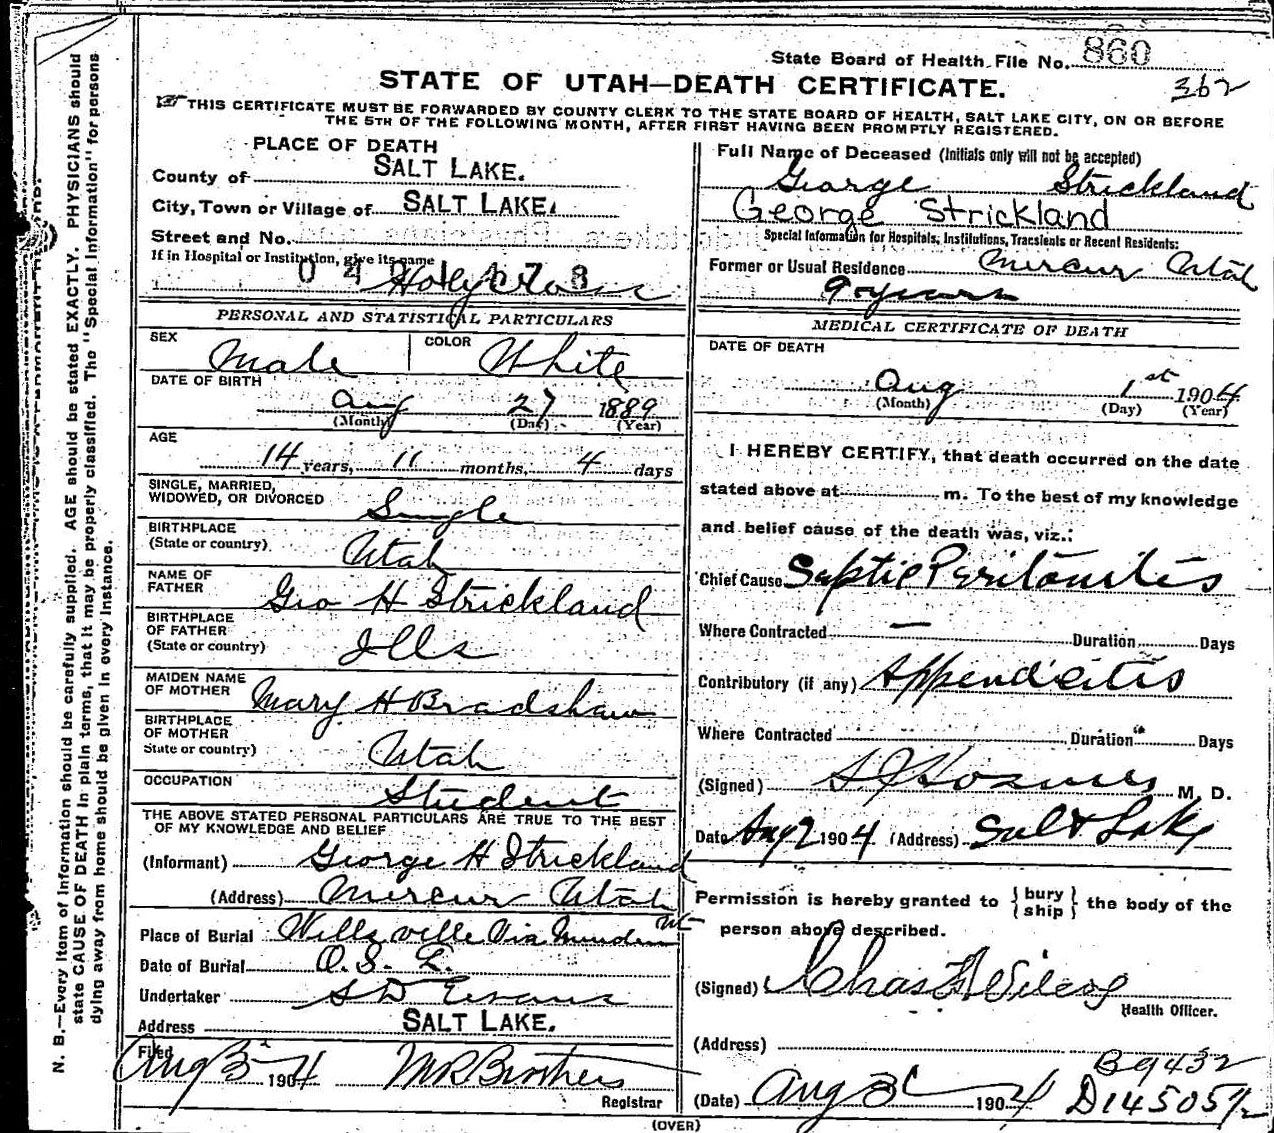 State Board of Health File No. 860
362
STATE OF UTAH—DEATH CERTIFICATE.
THIS CERTIFICATE MUST BE FORWARDED BY COUNTY CLERK TO THE STATE BOARD OF HEALTH, SALT LAKE CITY, ON OR BEFORE
THE 5TH OF THE FOLLOWING MONTH, AFTER FIRST HAVING BEEN PROMPTLY REGISTERED.
PLACE OF DEATH
County of SALT LAKE.
City, Town or Village of SALT LAKE.
Street and No.
If in Hospital or Institution, give its name
Holy Cross
PERSONAL AND STATISTICAL PARTICULARS
SEX Male COLOR White
DATE OF BIRTH
Aug 27 1889
(Month) (Day) (Year)
AGE
14 years, 11 months, 4 days
SINGLE, MARRIED,
WIDOWED, OR DIVORCED Single
BIRTHPLACE
(State or country) Utah
NAME OF
FATHER Geo H Strickland
BIRTHPLACE
OF FATHER
(State or country) Ills
MAIDEN NAME
OF MOTHER Mary H Bradshaw
BIRTHPLACE
OF MOTHER
State or country) Utah
OCCUPATION Student
THE ABOVE STATED PERSONAL PARTICULARS ARE TRUE TO THE BEST
OF MY KNOWLEDGE AND BELIEF
(Informant) George H Strickland
(Address) Mercur Utah
Place of Burial Willsville Via Ut
Date of Burial O. S. L.
Undertaker S D Evans
Address SALT LAKE.
Filed Aug 3 1904 M R Brothers
Registrar
Full Name of Deceased (Initials only will not be accepted)
George Strickland
George Strickland
Special Information for Hospitals, Institutions, Transients or Recent Residents:
Former or Usual Residence Mercur Utah
9 years
MEDICAL CERTIFICATE OF DEATH
DATE OF DEATH
Aug 1st 1904
(Month) (Day) (Year)
I HEREBY CERTIFY, that death occurred on the date
stated above at m. To the best of my knowledge
and belief cause of the death was, viz.:
Chief Cause Septic Peritonitis
Where Contracted — Duration Days
Contributory (if any) Appendicitis
Where Contracted Duration Days
(Signed) M. D.
Date Aug 2 1904 (Address) Salt Lake
Permission is hereby granted to { bury ship } the body of the
person above described.
(Signed) Chas
Health Officer.
(Address)
B9432
(Date) Aug 3 1904 D14505½
(OVER)
N. B.—Every item of information should be carefully supplied. AGE should be stated EXACTLY. PHYSICIANS should
state CAUSE OF DEATH in plain terms, that it may be properly classified. The "Special Information" for persons
dying away from home should be given in every instance.